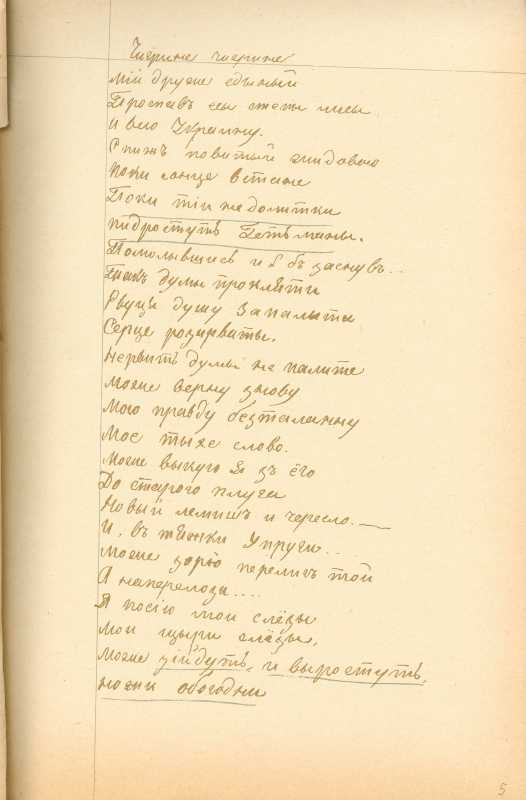 Чигрине чигрине
Мій друже єдыный
Проспавъ есы степы лисы
И всю Украину.
Спижъ повитый жидовою
Поки сонце встане
Поки тіи недолитки
Пидростуть Гетьманы.
Помолывшись и я бъ заснувъ...
Такъ думы прокляти
Рвуця душу запалыты
Серце розирваты.
Нервить думы не палите
Може верну знову
Мою правду безталанну
Мое тыхе слово.
Може выкую я зъ ёго
До старого плуга
Новый лемишъ и чересло.
И, въ тяжки упруги...
Може зорю перелигъ той
А на перелози....
Я посію мои слёзы
Мои щыри слёзы,
Може зійдуть, и выростуть,
ножи обоюдни
5